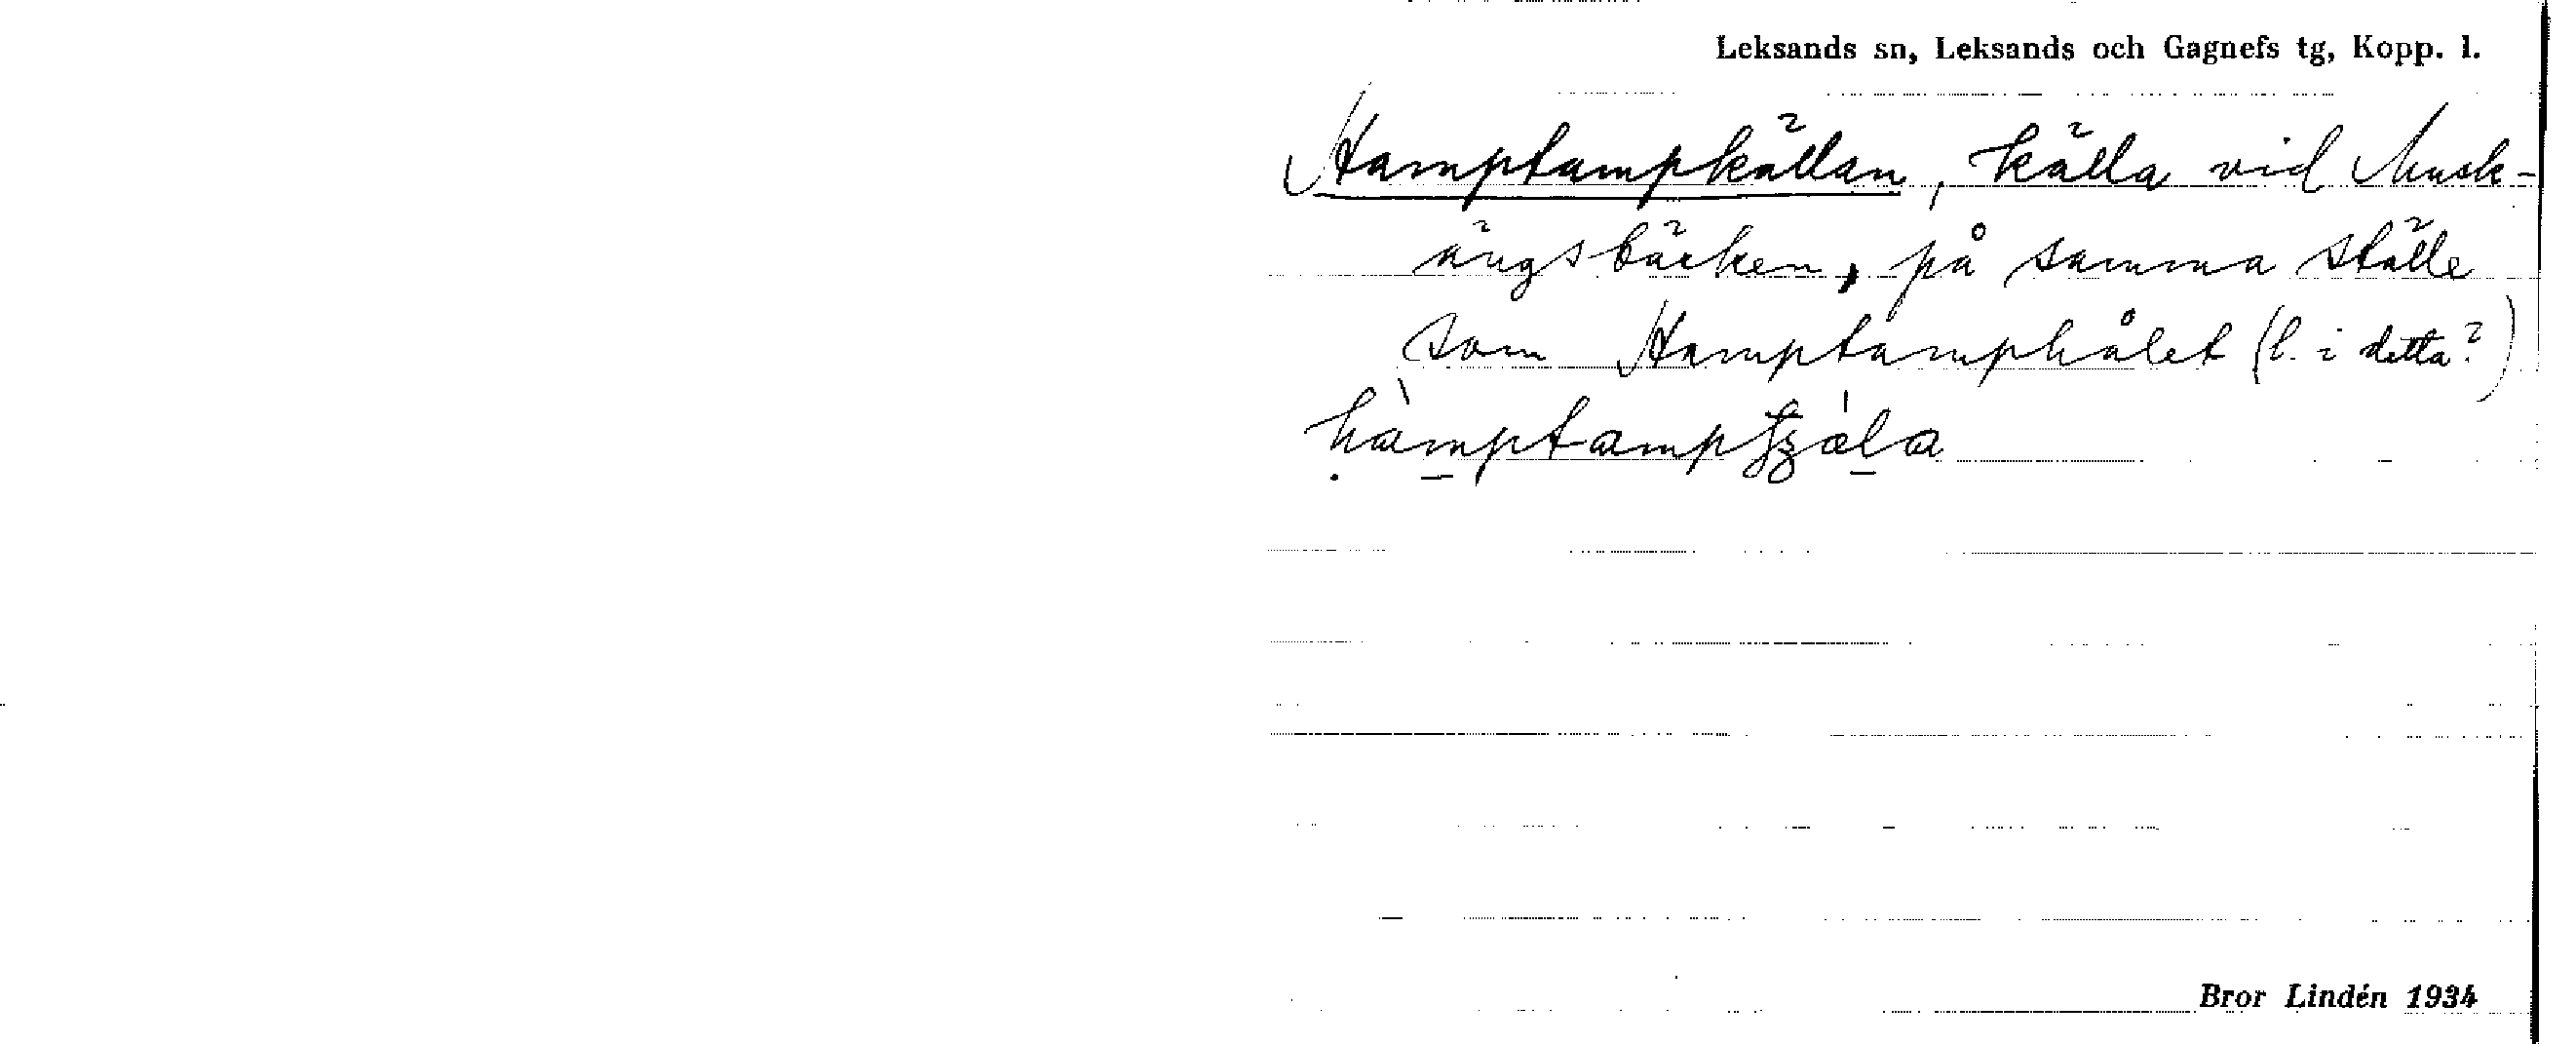 Leksands sn, Leksands och Gagnefs tg, Kopp. l.
Hamptampkällan, källa vid Musk-
ängsbäcken, på samma ställe
som Hamptamphålet (l. i detta?)
Bror Lindén 1934